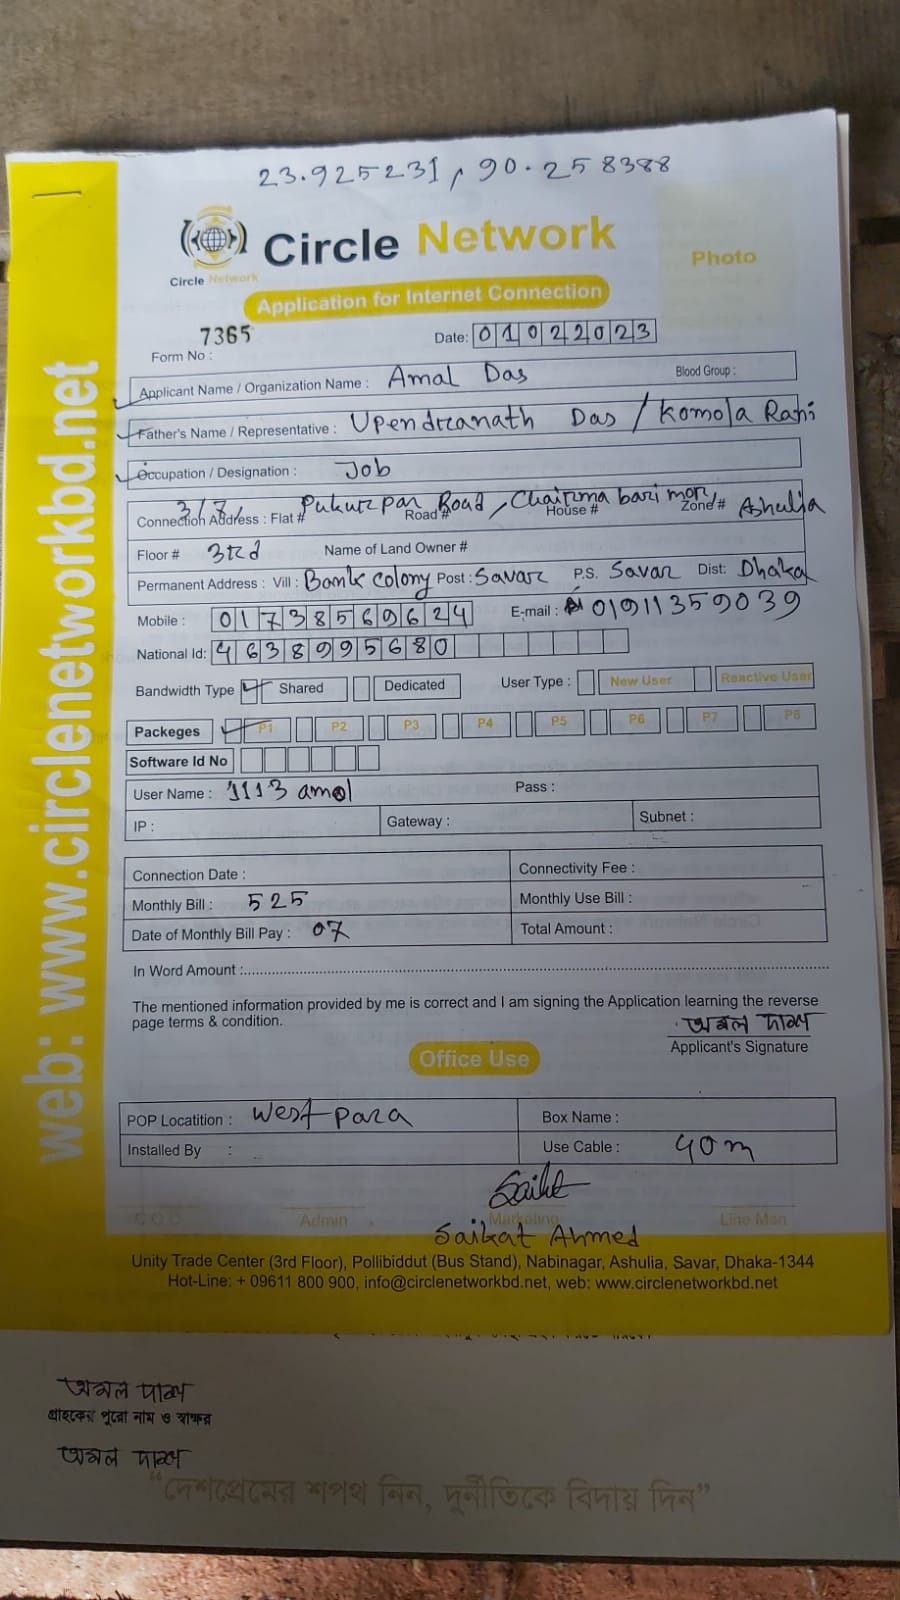 23.925231, 90.258388
Circle Network
Circle Network
Photo
Application for Internet Connection
7365
Form No :
Date: 01022023
Applicant Name / Organization Name : Amal Das Blood Group :
Father's Name / Representative : Upendranath Das / Komola Rani
Occupation / Designation : Job
Connection Address : Flat # 3/8/ Pukurpar Road, Road # Chairma bari mor, House # Zone # Ashulia
Floor # 3rd Name of Land Owner #
Permanent Address : Vill : Bank colony Post : Savar P.S. Savar Dist: Dhaka
Mobile : 01738569624 E-mail : 01911359039
National Id: 4638995680
Bandwidth Type Shared Dedicated User Type : New User Reactive User
Packeges P1 P2 P3 P4 P5 P6 P7 P8
Software Id No
User Name : 1113 amol Pass :
IP : Gateway : Subnet :
Connection Date : Connectivity Fee :
Monthly Bill : 525 Monthly Use Bill :
Date of Monthly Bill Pay : 07 Total Amount :
In Word Amount :
The mentioned information provided by me is correct and I am signing the Application learning the reverse
page terms & condition.
অমল দাস
Applicant's Signature
Office Use
POP Locatition : West para Box Name :
Installed By : Use Cable : 40m
C.O.O Admin Marketing Line Man
Saikat Ahmed
Unity Trade Center (3rd Floor), Pollibiddut (Bus Stand), Nabinagar, Ashulia, Savar, Dhaka-1344
Hot-Line: + 09611 800 900, info@circlenetworkbd.net, web: www.circlenetworkbd.net
web: www.circlenetworkbd.net
অমল দাস
গ্রাহকের পুরো নাম ও স্বাক্ষর
অমল দাস
“দেশপ্রেমের শপথ নিন, দুর্নীতিকে বিদায় দিন”